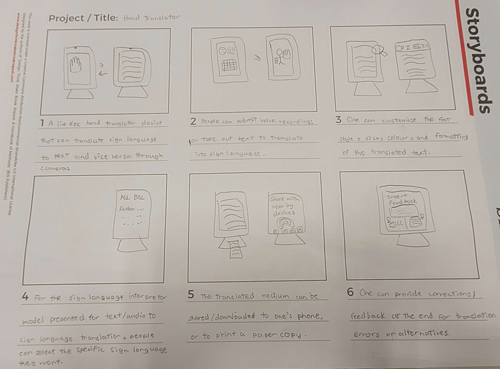 Storyboards
Project / Title: Hand Translator
1 A live free hand translator device
that can translate sign language
to text and vice versa through
cameras
2 People can submit voice recordings
or type out text to translate
into sign language.
3 One can customise the font
style & size, colours and formatting
of the translated text.
ASL BSL
4 For the sign language interpreter
model presented for text/audio to
sign language translation, people
can select the specific sign language
they want.
Share with
near by
devices
5 The translated medium can be
shared/downloaded to one's phone,
or to print a paper copy.
Insert
feedback
6 One can provide corrections/
feedback at the end for translation
errors or alternatives.